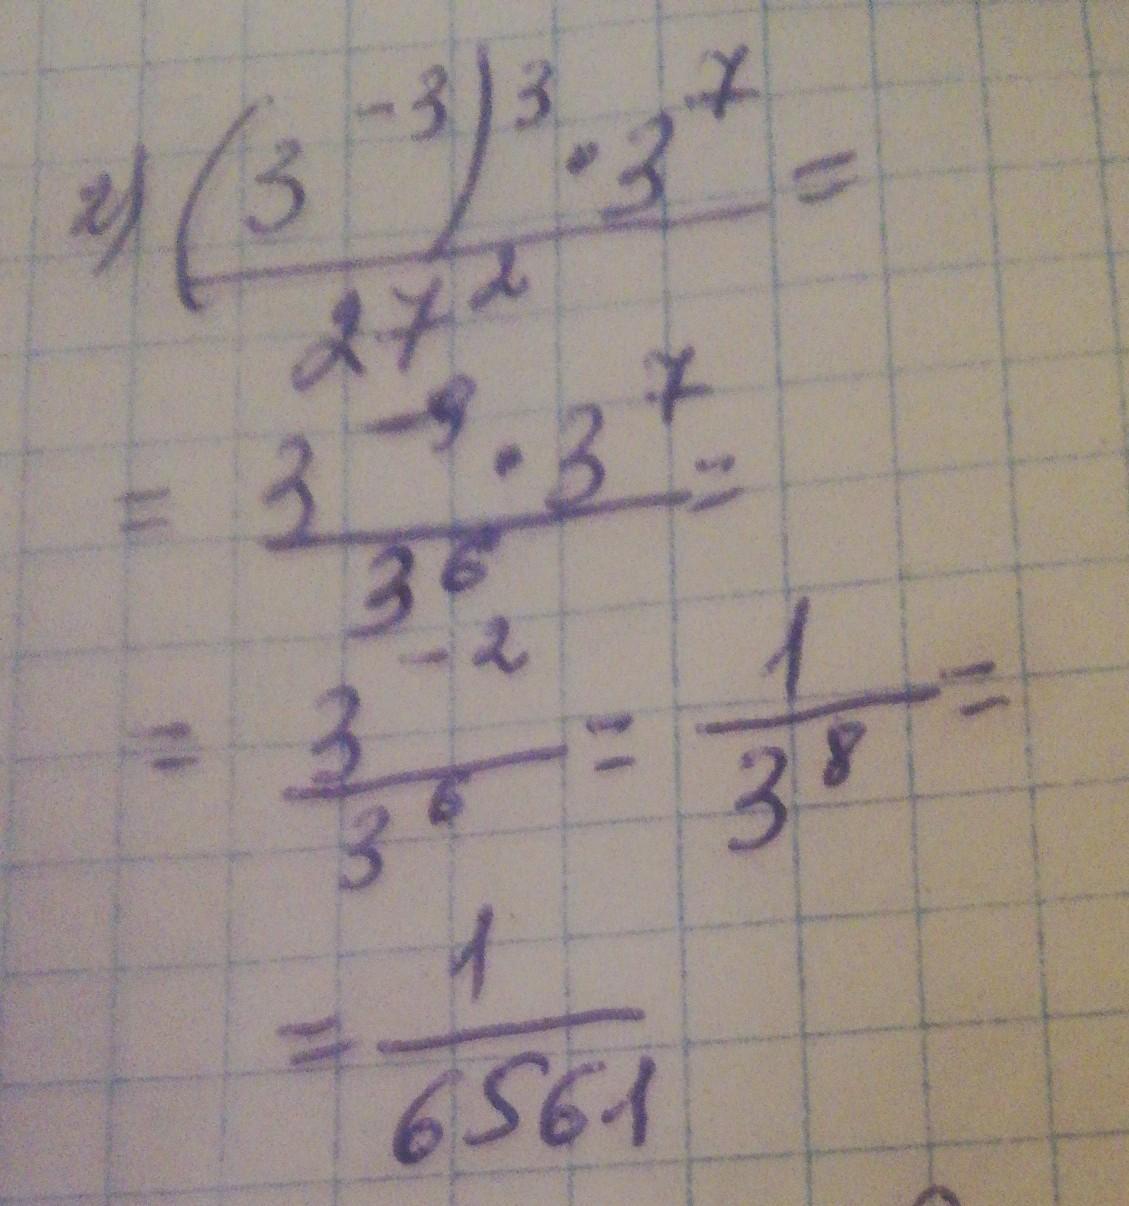 2) (3^-3)^3 · 3^7 / 27^2 =
= 3^-9 · 3^7 / 3^6 =
= 3^-2 / 3^6 = 1 / 3^8 =
= 1 / 6561